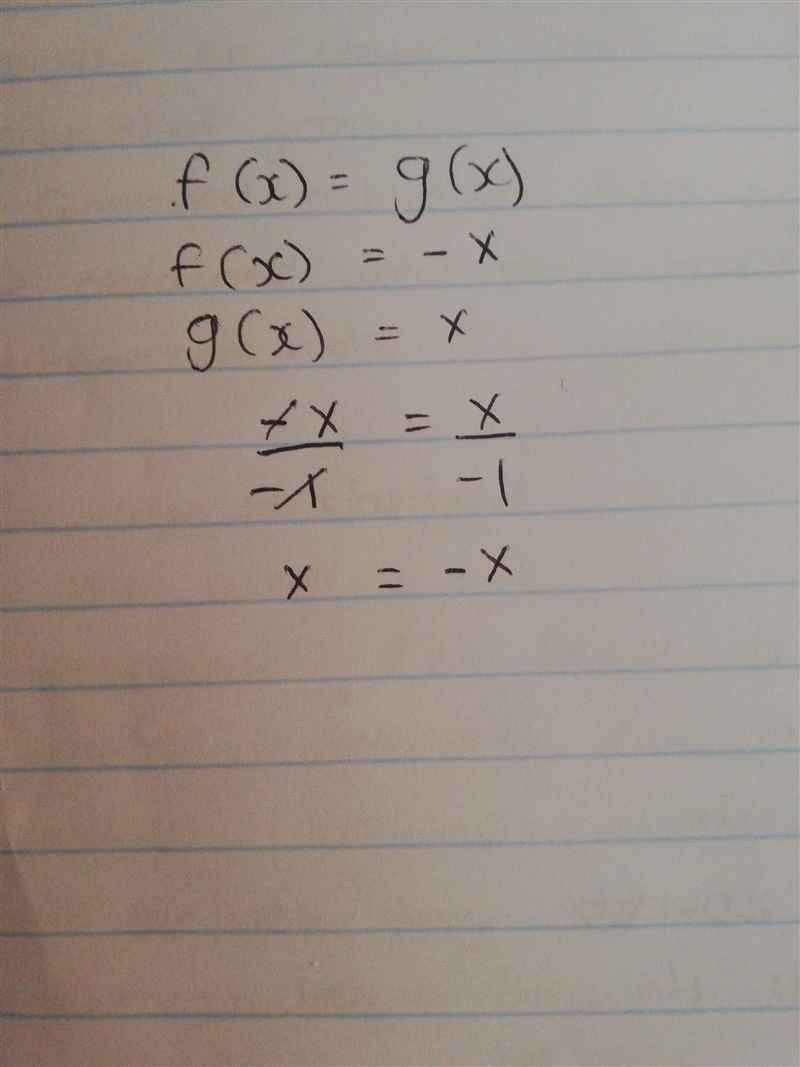 f(x) = g(x)
f(x) = -x
g(x) = x
-x/-1 = x/-1
x = -x